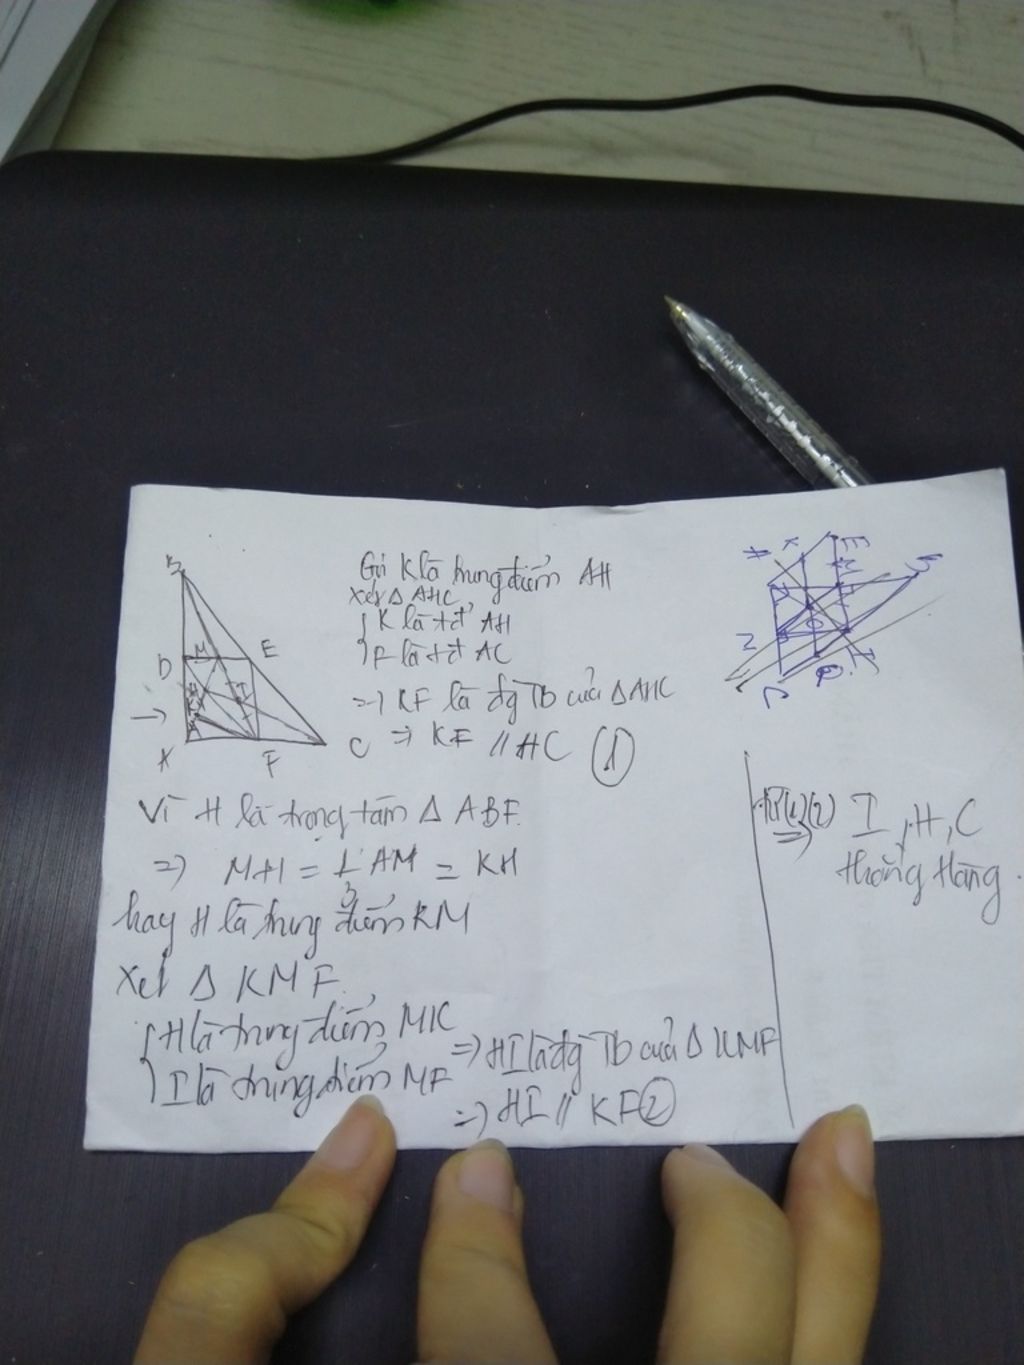 B
D
M
E
A
F
C
Gọi K là trung điểm AH
xét Δ AHC
K là tđ AH
F là tđ AC
=> KF là đg TB của Δ AHC
=> KF // HC ①
Vì H là trọng tâm Δ ABF.
=> MH = 1/3 AM = KH
hay H là trung điểm KM
Xét Δ KMF.
H là trung điểm MK
I là trung điểm MF
=> HI là đg TB của Δ KMF
=> HI // KF ②
Từ (1)(2)
=> I, H, C
thẳng hàng.
A
K
E
M
B
N
O
C
Q
I